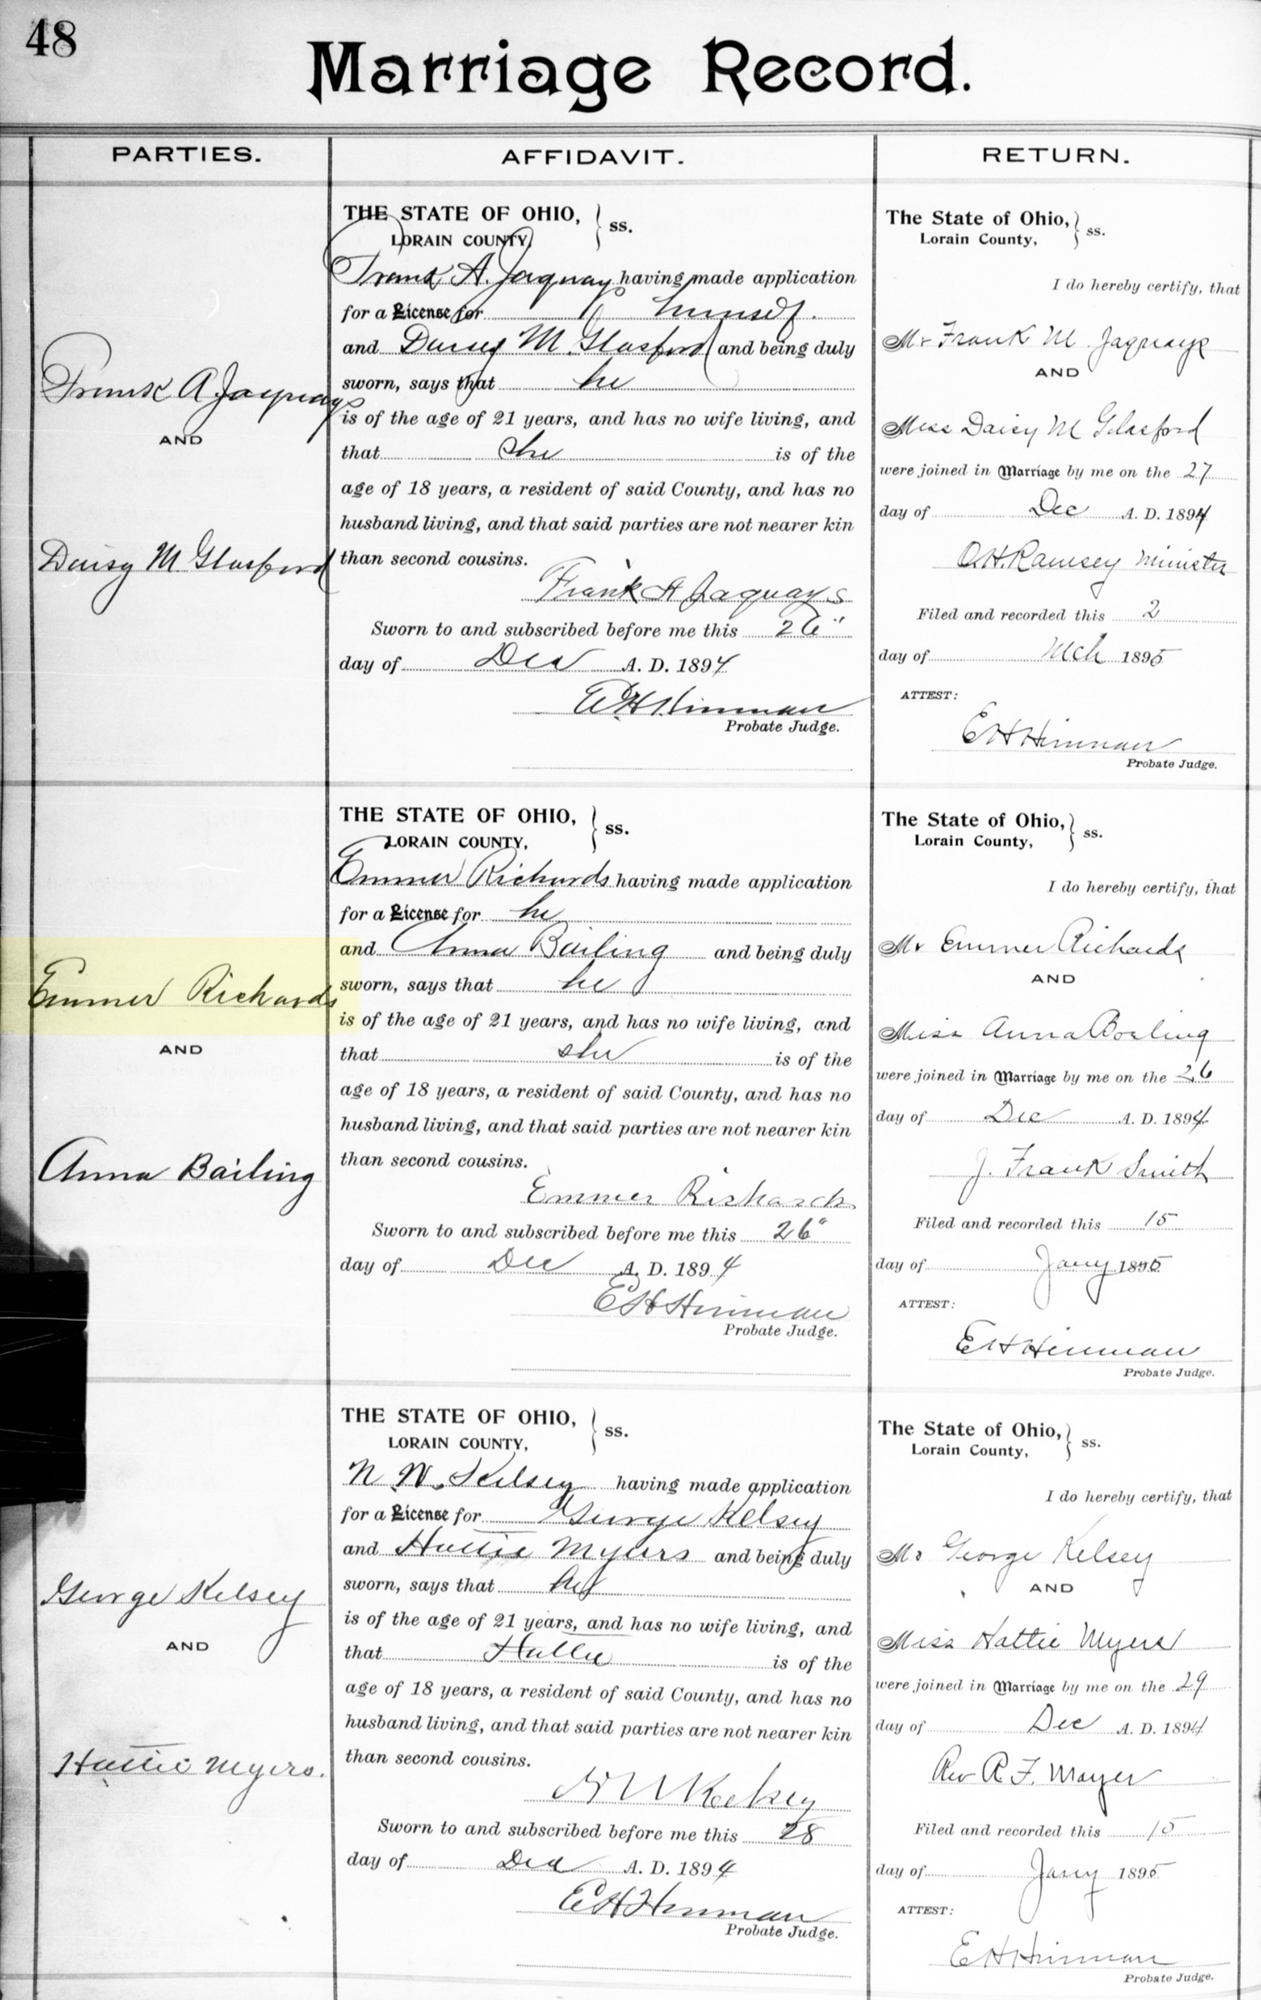 48
Marriage Record.
PARTIES.
AFFIDAVIT.
RETURN.
Frank A Jaquays
AND
Daisy M Glasford
THE STATE OF OHIO, } ss.
LORAIN COUNTY,
Frank A. Jaquays having made application
for a License for himself.
and Daisy M. Glasford and being duly
sworn, says that he
is of the age of 21 years, and has no wife living, and
that she is of the
age of 18 years, a resident of said County, and has no
husband living, and that said parties are not nearer kin
than second cousins.
Frank A Jaquays
Sworn to and subscribed before me this 26"
day of Dec A. D. 1894
E H Hinman
Probate Judge.
The State of Ohio, } ss.
Lorain County,
I do hereby certify, that
Mr Frank M. Jaquays
AND
Miss Daisy M Glasford
were joined in Marriage by me on the 27
day of Dec A. D. 1894
O.H. Ramsey Minister
Filed and recorded this 2
day of Mch 1895
ATTEST:
E H Hinman
Probate Judge.
Emmer Richards
AND
Anna Bailing
THE STATE OF OHIO, } ss.
LORAIN COUNTY,
Emmer Richards having made application
for a License for he
and Anna Bailing and being duly
sworn, says that he
is of the age of 21 years, and has no wife living, and
that she is of the
age of 18 years, a resident of said County, and has no
husband living, and that said parties are not nearer kin
than second cousins.
Emmer Richards
Sworn to and subscribed before me this 26"
day of Dec A. D. 1894
E H Hinman
Probate Judge.
The State of Ohio, } ss.
Lorain County,
I do hereby certify, that
Mr Emmer Richards
AND
Miss Anna Bosling
were joined in Marriage by me on the 26
day of Dec A. D. 1894
J. Frank Smith
Filed and recorded this 15
day of Jany 1895
ATTEST:
E H Hinman
Probate Judge.
George Kelsey
AND
Hattie Myers.
THE STATE OF OHIO, } ss.
LORAIN COUNTY,
N. W. Kelsey having made application
for a License for George Kelsey
and Hattie Myers and being duly
sworn, says that he
is of the age of 21 years, and has no wife living, and
that Hattie is of the
age of 18 years, a resident of said County, and has no
husband living, and that said parties are not nearer kin
than second cousins.
N W Kelsey
Sworn to and subscribed before me this 28
day of Dec A. D. 1894
E H Hinman
Probate Judge.
The State of Ohio, } ss.
Lorain County,
I do hereby certify, that
Mr George Kelsey
AND
Miss Hattie Myers
were joined in Marriage by me on the 29
day of Dec A. D. 1894
Rev R. F. Mayer
Filed and recorded this 15
day of Jany 1895
ATTEST:
E H Hinman
Probate Judge.